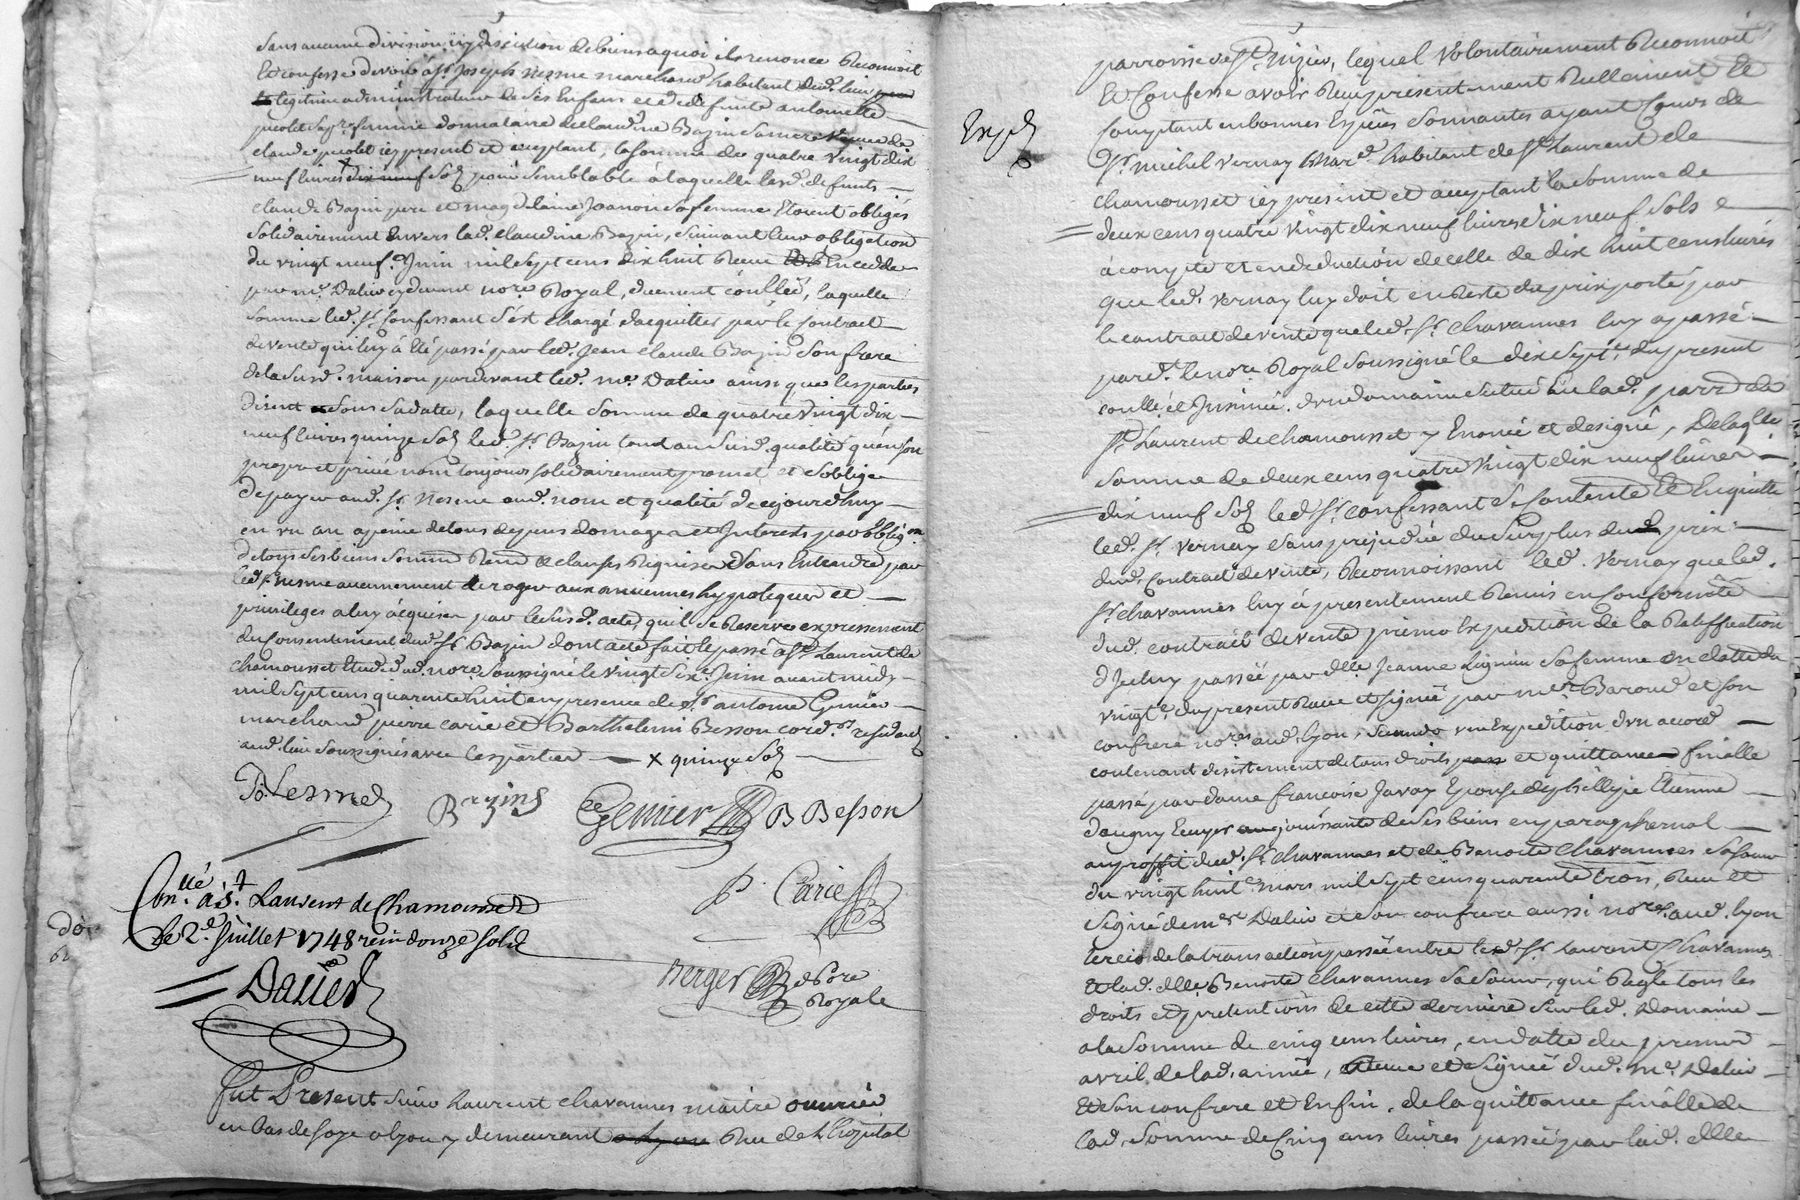 sans aucune division ny discution de biens a quoi ils renonce Reconnoit
Et confesse devoir à Sr. Joseph nesme marchand habitant dud. lieu
legitime administrateur de ses Enfans et de defunte antoinette
peolet sa pre. femme donnataire de claudine Bazin sa mere veuve de
claude peolet icy present et acceptant, la somme de quatre vingt dix
neuf livres dix neuf sols pour semblable a laquelle lesd. defunts
claude Bazin pere et magdelaine Joanon sa femme Etoient obligés
solidairement Envers lad. claudine Bazin, suivant leur obligation
du vingt neuf. Juin mil sept cens dix huit Receue
par me. Dalier cy devant nore. Royal, duement conllée, laquelle
somme led. Sr. Confessant s'est chargé d'acquitter par le Contract
de vente qui luy à Eté passé par led. Jean claude Bazin son frere
de la susd. maison pardevant led. me. Dalier ainsi que les parties
disent sous sa datte, laquelle somme de quatre vingt dix
neuf livres quinze sols led. Sr. Bazin tant aud. susd. qualité qu'en son
propre et privé nom toujours solidairement promet et s'oblige
de payer aud. Sr. nesme aud. nom et qualité d'icy jourdhuy
en un an a peine de tous depens domages et Interets par oblig.on
de tous ses biens soumis. Renon. & clauses Requises sans Entendre par
led. Sr nesme aucunement deroger aux anciennes hypoteques et
privileges a luy acquises par le susd. acte, qu'il se Reserve expressement
du Consentement dud. Sr. Bazin dont acte fait et passé à St. Laurent de
chamousset Etude dud. nore. soussigné le vingt six. Juin avant midy
mil sept cens quarante huit en presence de Sr. antoine Genier
marchand pierre carie et Barthelemi Besson cord.rs residants
aud. lieu soussignés avec les parties x quinze sols
Jo: Lesmed
Bazin
Genier B Besson
P. Carie
Conllé. à St. Laurent de Chamousset
le 2e. Juillet 1748 reçu douze sols
Dalier
Berger nore
Royale
fut Present sieur Laurent chavannes maitre ouvrier
en bas de soye a lyon y demeurant a lyon Rue de L'hopital
parroisse de St. nizier, lequel volontairement Reconnoit
Et Confesse avoir Reçu presentement Reellement Et
Comptant en bonnes Especes sonnantes ayant Cours de
Expé
Sr. michel vernay mard. habitant de St. Laurent de
chamousset icy present et acceptant la somme de
deux cens quatre vingt dix neuf livres dix neuf sols
à compte et en deduction de celle de dix huit cens livres
que led. vernay luy doit en Reste du prix porté par
le contract de vente que led. Sr. chavannes luy a passé
pard.t le nore. Royal soussigné le dix sept.e du present
conllé et Insinué. d'un domaine situé En lad. parr. de
St. Laurent de chamousset y Enoncé et designé, De laqlle
somme de deux cens quatre vingt dix neuf livres
dix neuf sols led. Sr. confessant se Contente Et En quitte
led. Sr. vernay sans prejudice du surplus dud. prix
dud. Contract de vente, Reconnoissant led. vernay que led.
Sr. chavannes luy à presentement Remis en Conformité
dud. contract de vente primo Expedition de la Ratiffication
d'Iceluy passée par dlle. Jeanne Lignier sa femme en datte du
vingt.e du present Receue et signée par me. Baroud et son
confrere nores. aud. lyon, secundo une Expedition d'un accord
contenant desistement de tous droits et quittance finalle
passé par dame françoise Javay Epouse de philippe Etienne
daugny Ecuyer jouissante de ses biens en paraphernal
au proffit dud. Sr. Chavannes et de Benoite Chavannes sa sœur
du vingt huit.e mars mil sept cens quarante trois, Receu et
signé de me. Dalier et son confrere aussi nores. aud. lyon
tercio de la transaction passée entre led. Sr. Laurent Chavannes
Et lad. dlle. Benoite Chavannes sa sœur, qui Regle tous les
droits et pretentions de cette derniere sur led. Domaine
a la somme de cinq cens livres, en datte du premier
avril de lad. année, Receue et signée dud. me. Dalier
Et son confrere et Enfin, de la quittance finalle de
lad. somme de Cinq cens livres passée par lad. dlle